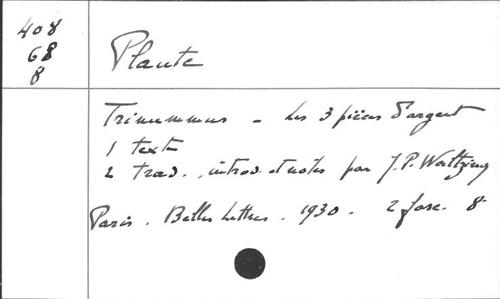 408
68
8
Plaute
Trinummus - Les 3 pièces d'argent
1 texte
2 trad., introd. et notes par J.P. Waltzing
Paris. Belles Lettres. 1930. 2 fasc. 8°